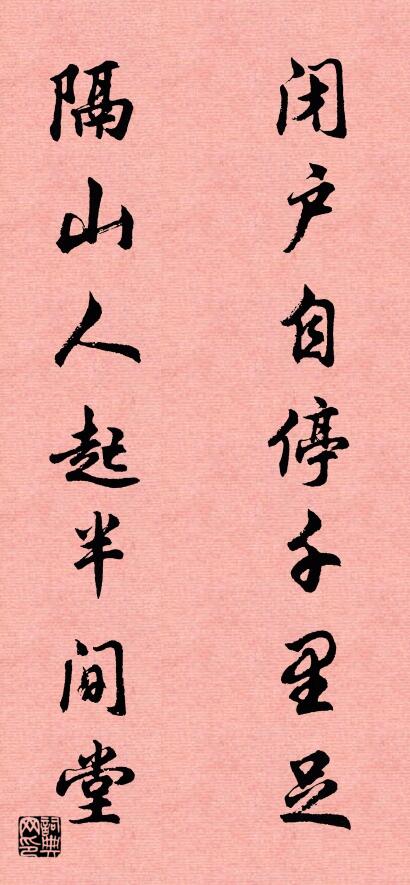 闭户自停千里足
隔山人起半间堂
詞典網印